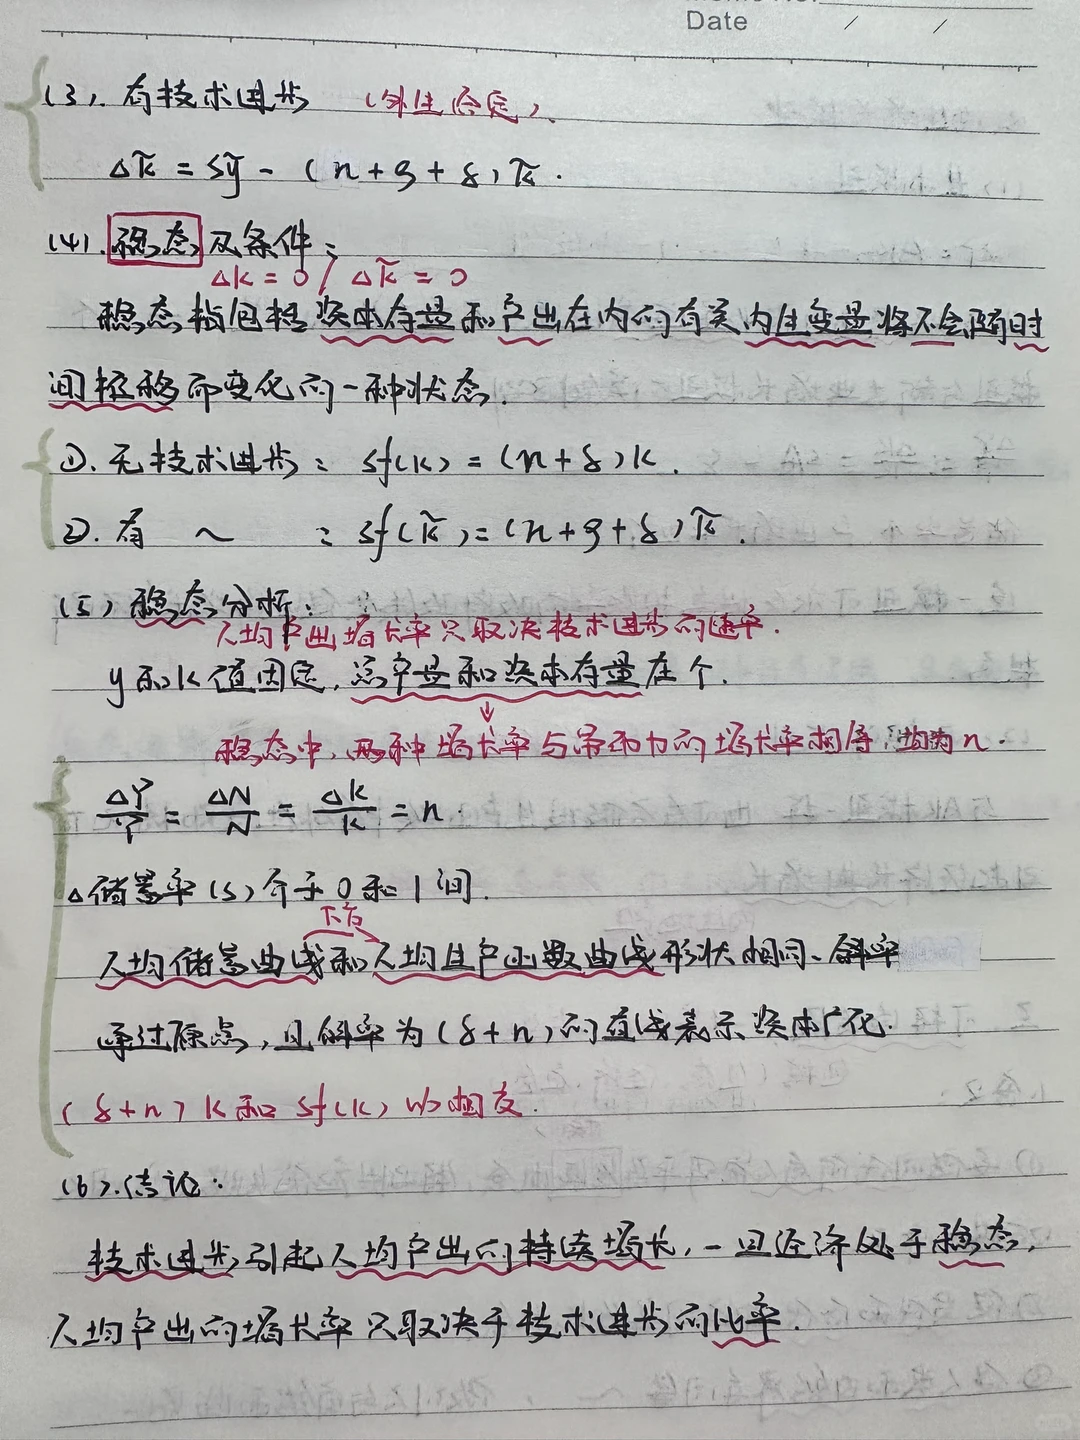 Date / /
(3). 有技术进步 (外生给定).
Δk̃ = sỹ - (n+g+δ)k̃.
(4). 稳态及条件:
Δk=0 / Δk̃=0
稳态指包括资本存量和产出在内的有关内生变量将不会随时
间推移而变化的一种状态.
①. 无技术进步: sf(k)=(n+δ)k.
②. 有 ~ : sf(k̃)=(n+g+δ)k̃.
(5) 稳态分析:
人均产出增长率只取决技术进步的速率.
y和k值固定, 总产量和资本存量在个.
↓
稳态中, 两种增长率与劳动力的增长率相等, 均为n.
ΔY/Y = ΔN/N = Δk/k = n.
△储蓄率(s)介于0和1间.
下方
人均储蓄曲线和人均生产函数曲线形状相同、斜率
通过原点, 且斜率为(δ+n)的直线表示资本广化.
(δ+n)k和sf(k)必相交.
(6).结论:
技术进步引起人均产出的持续增长, 一旦经济处于稳态,
人均产出的增长率只取决于技术进步的比率.